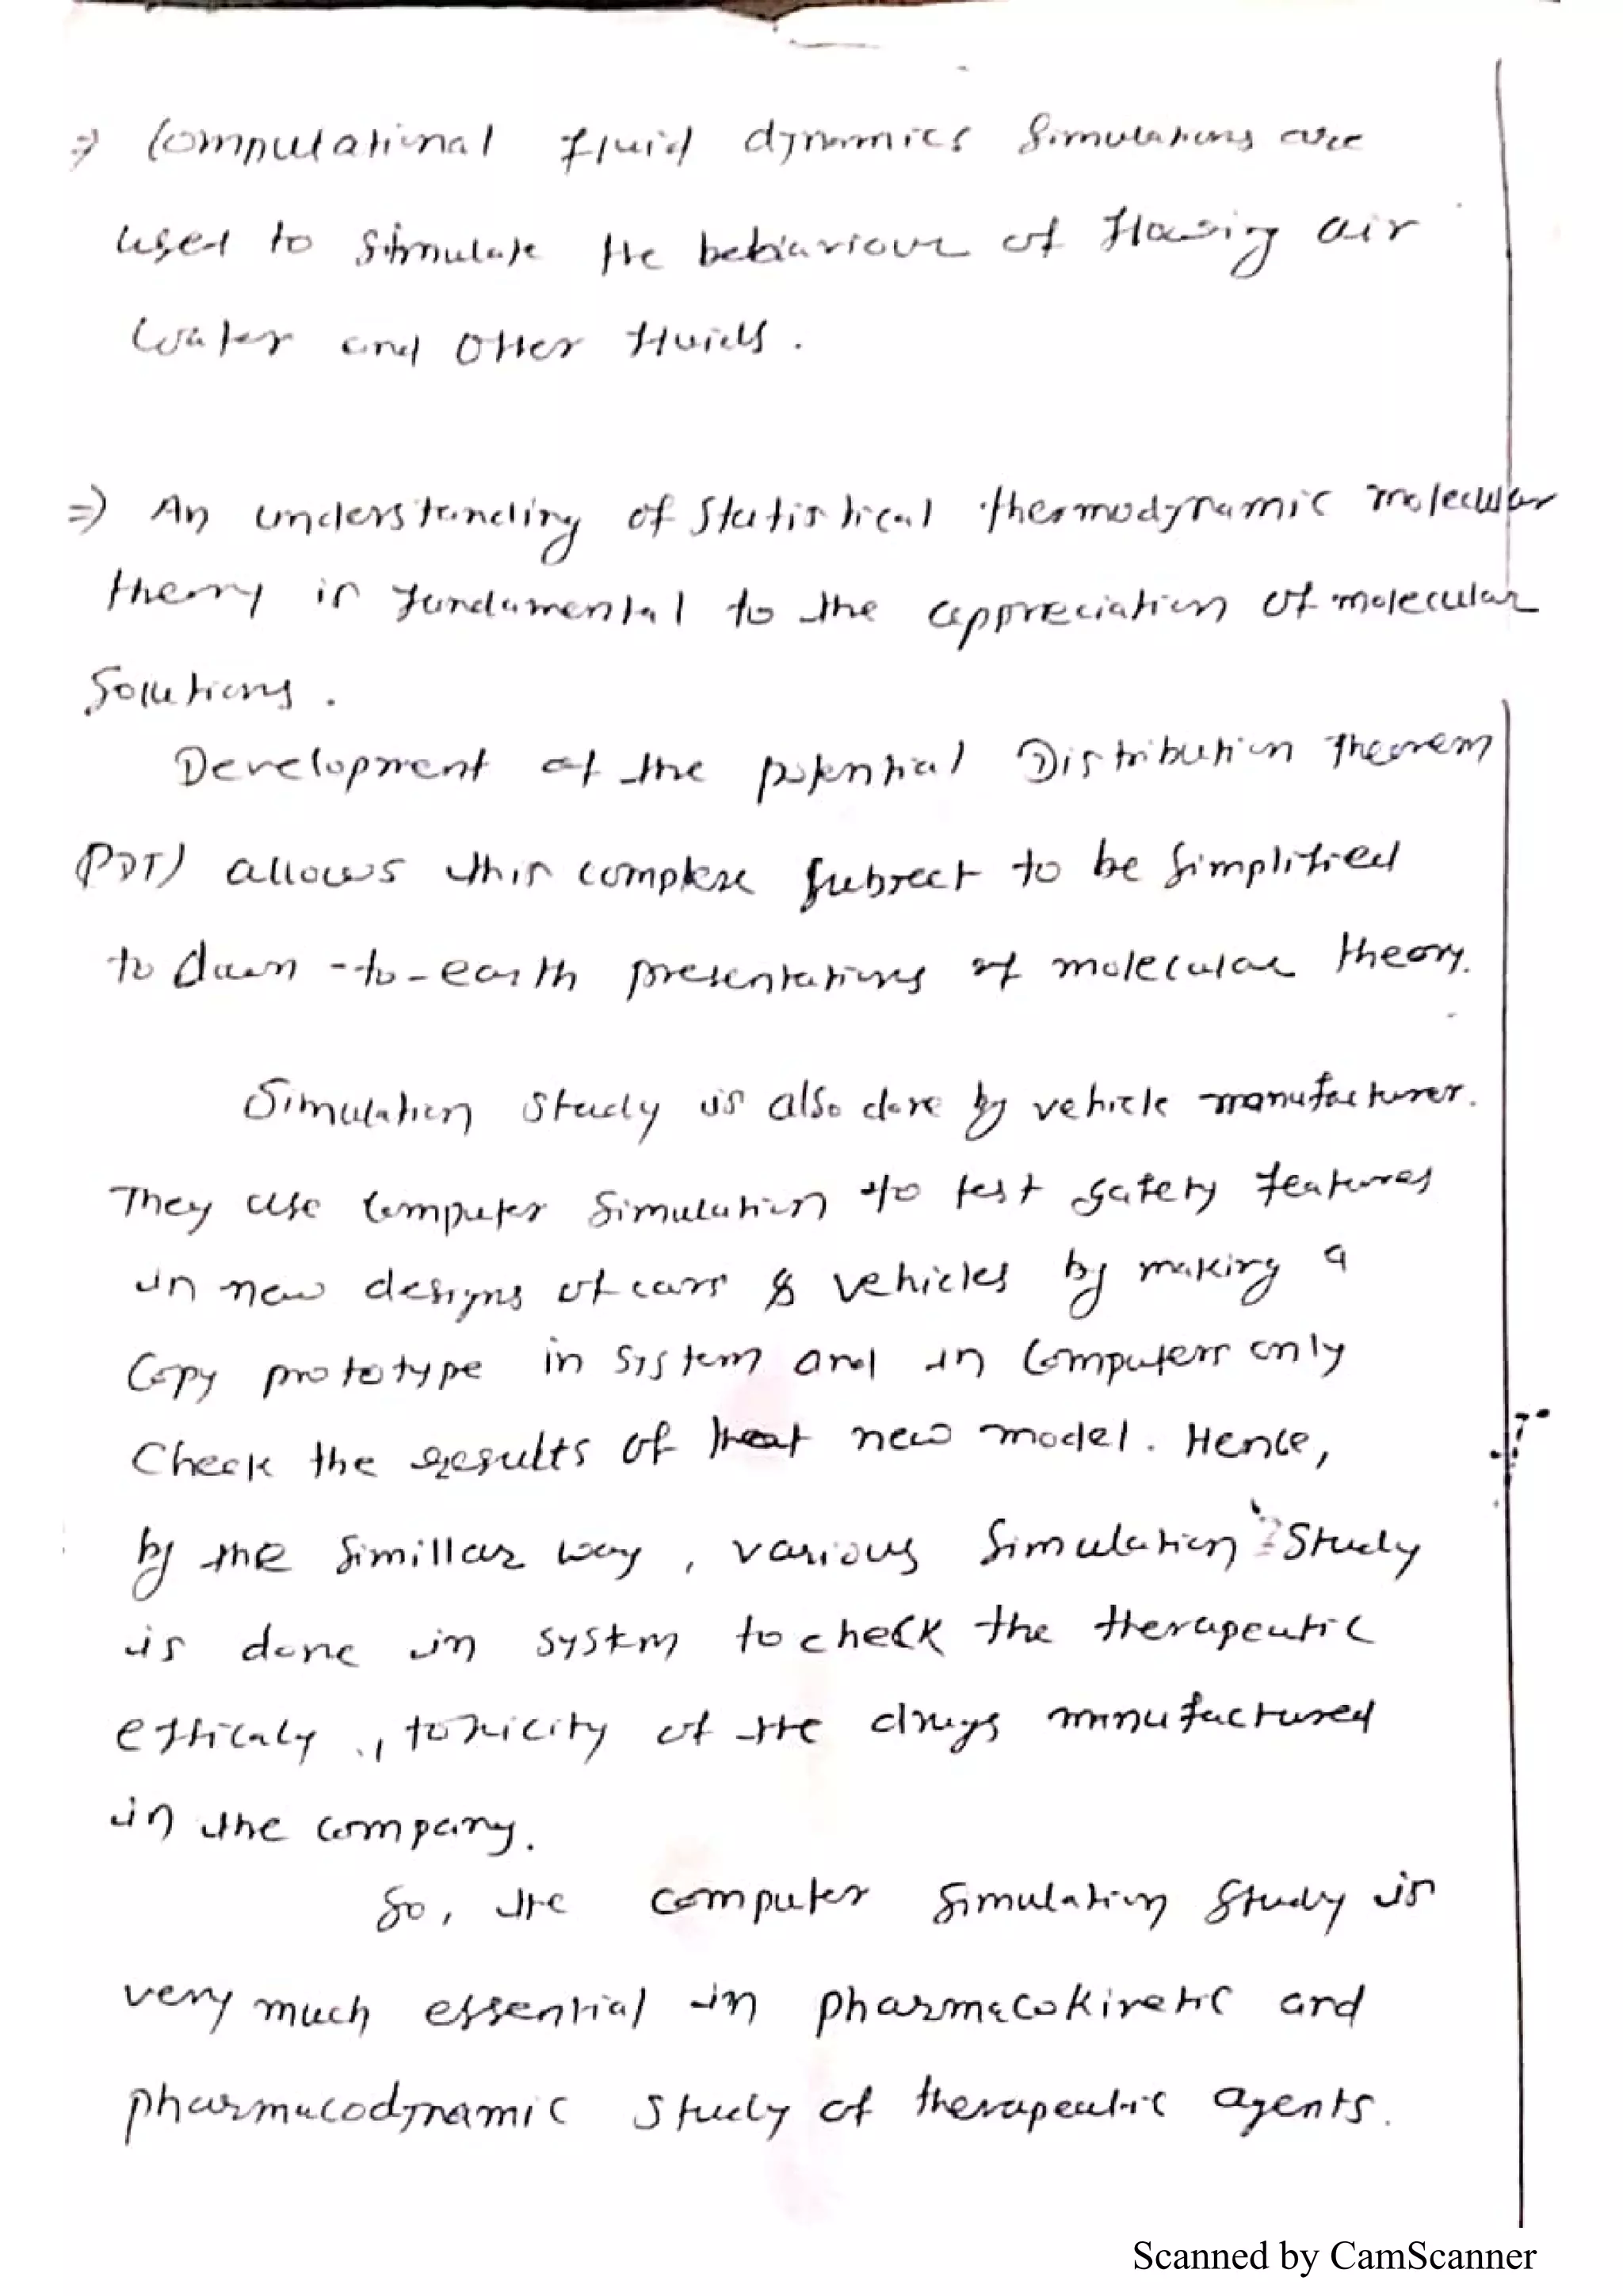 ⇒ Computational fluid dynamics simulations are
used to stimulate the behaviour of flowing air
water and other fluids.
⇒ An understanding of statistical thermodynamic molecular
theory is fundamental to the appreciation of molecular
solutions.
Development of the potential Distribution Theorem
(PDT) allows this complex subject to be simplified
to down-to-earth presentations of molecular theory.
Simulation study is also done by vehicle manufacturer.
They use computer simulation to test safety features
in new designs of cars & vehicles by making a
copy prototype in system and in computers only
check the results of that new model. Hence,
by the simillar way, various simulation study
is done in system to check the therapeutic
efficacy, toxicity of the drugs manufactured
in the company.
So, the computer simulation study is
very much essential in pharmacokinetic and
pharmacodynamic study of therapeutic agents.
Scanned by CamScanner